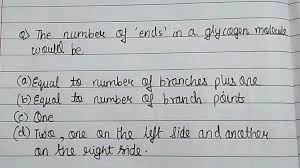 Q) The number of 'ends' in a glycogen molecule
would be
(a) Equal to number of branches plus one
(b) Equal to number of branch points
(c) One
(d) Two, one on the left side and another
on the right side.